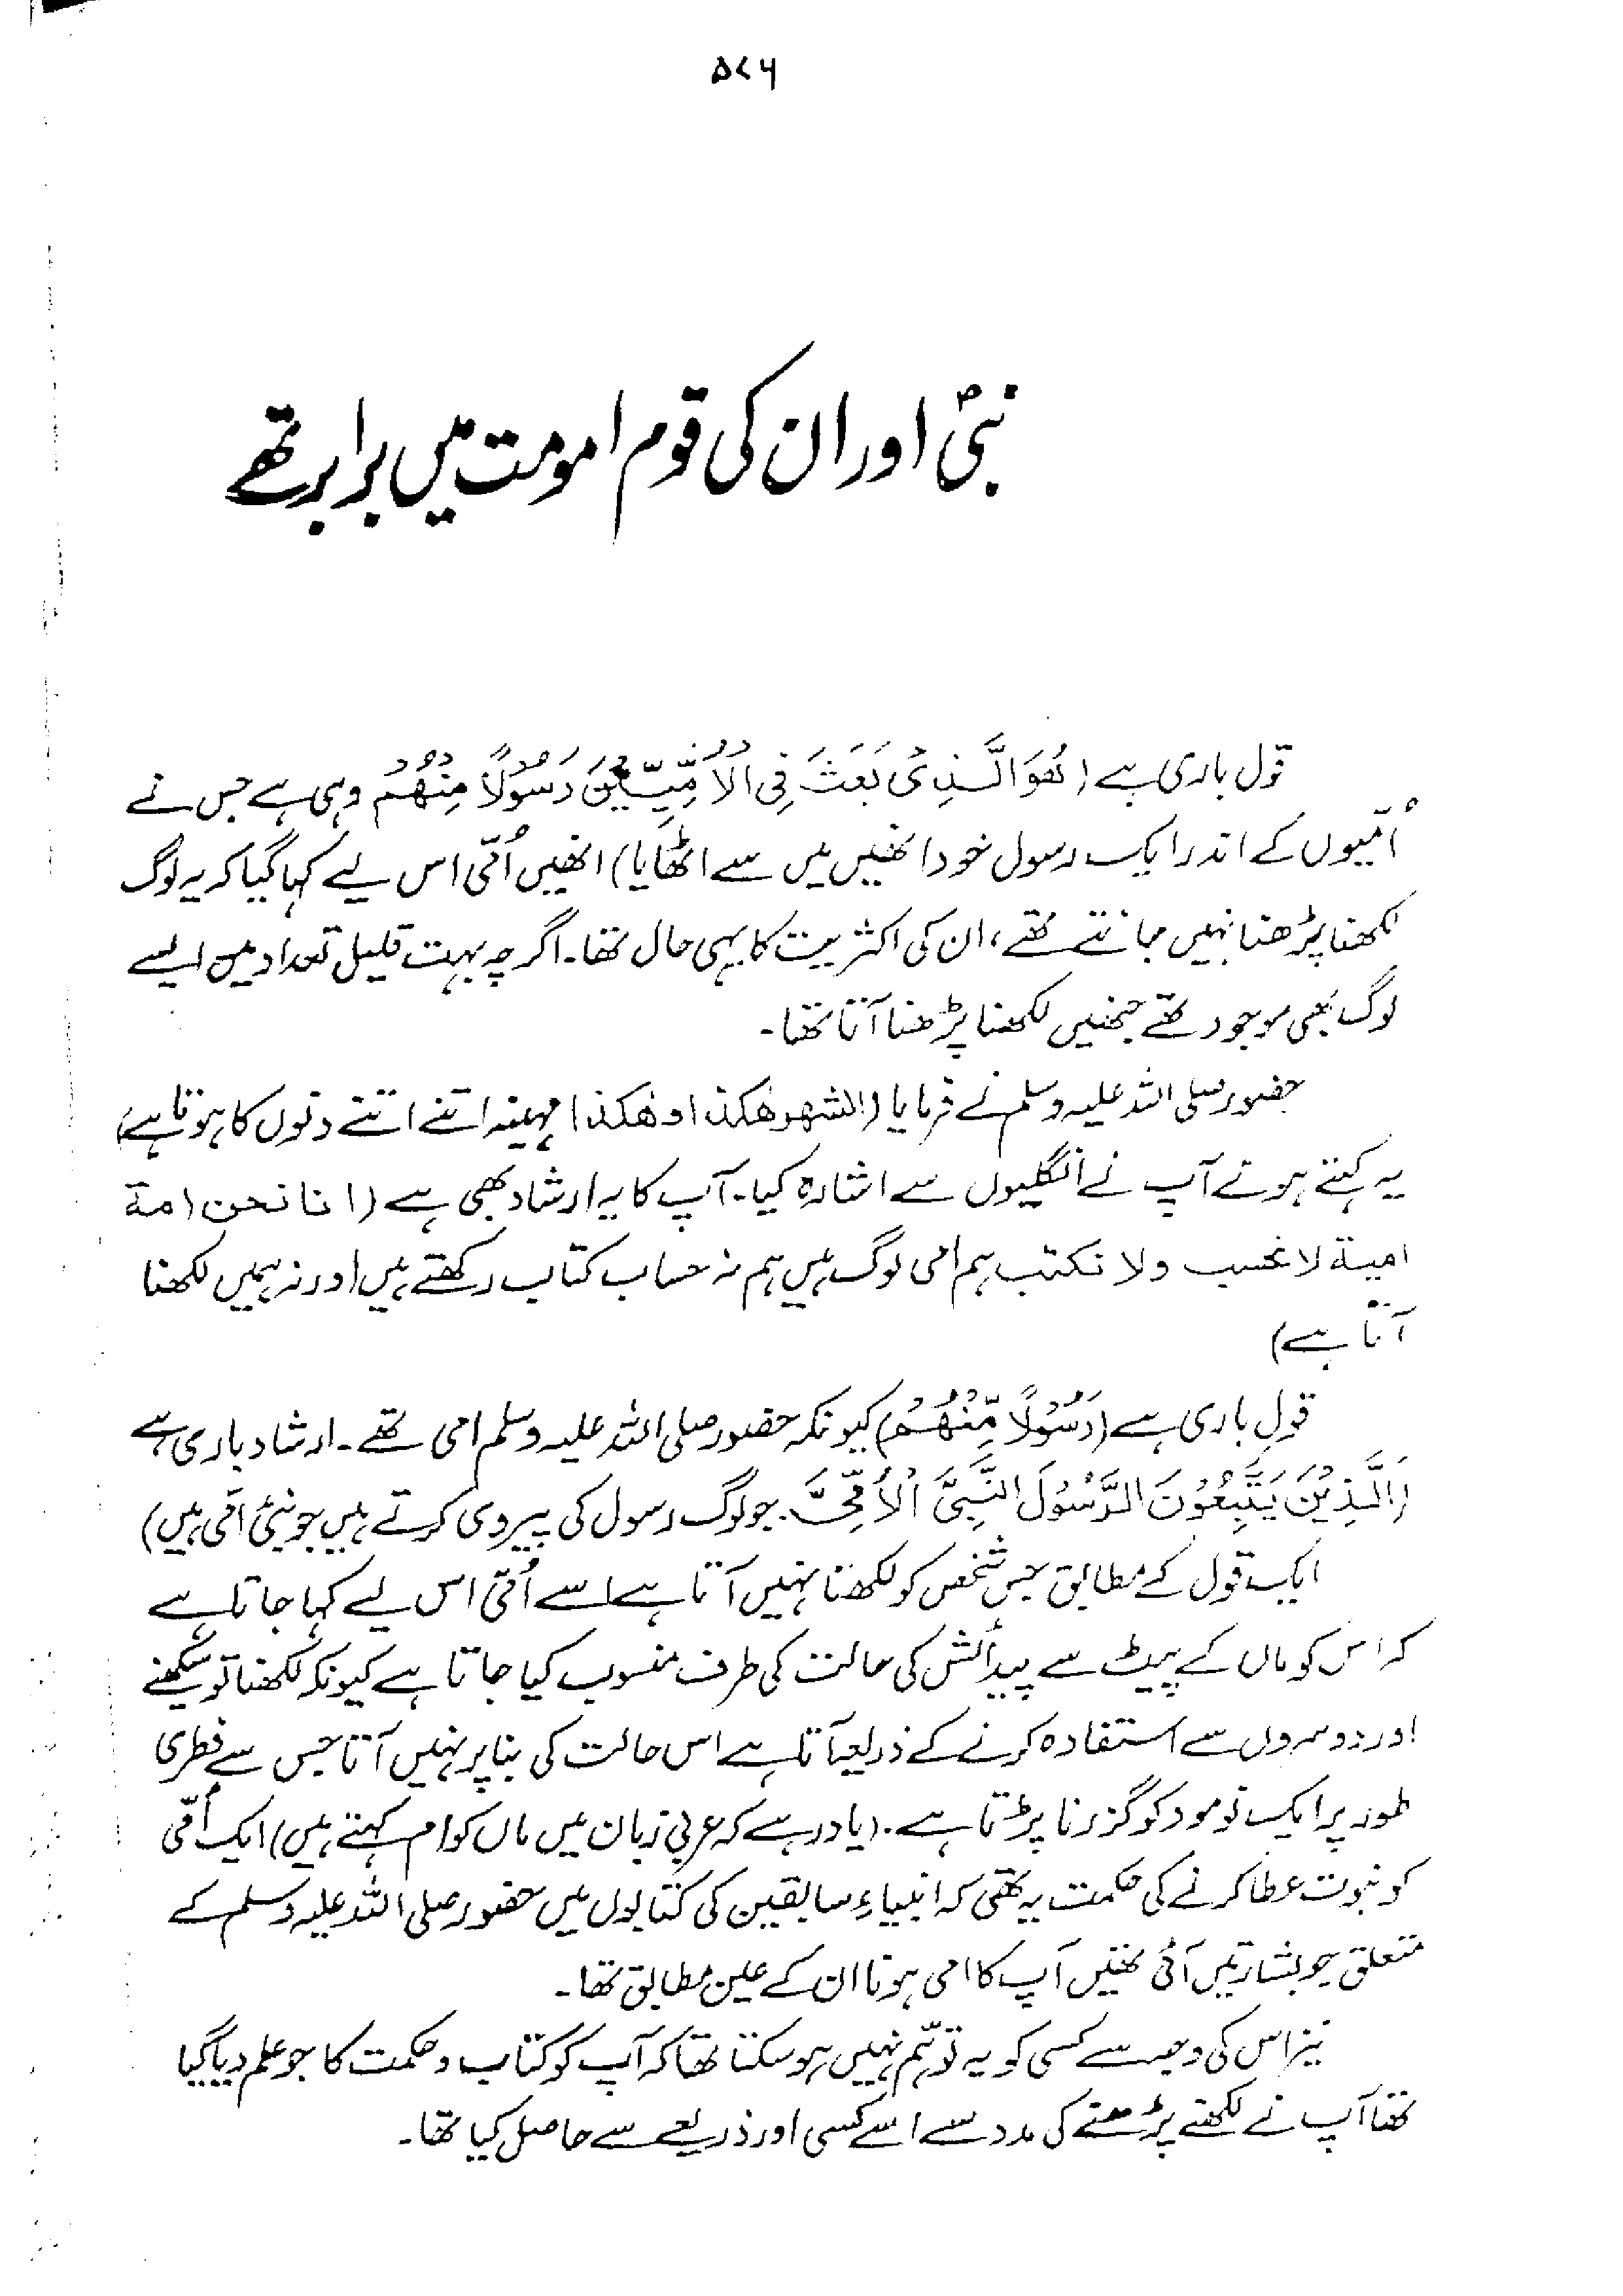 ۵۷۶
نبیؐ اور ان کی قوم امومت میں برابر تھے
قول باری ہے (هُوَ الَّذِیْ بَعَثَ فِی الْاُمِّیّٖنَ رَسُوْلًا مِنْهُمْ وہی ہے جس نے
اُمّیوں کے اندر ایک رسول خود انھیں میں سے اٹھایا) انھیں اُمّی اس لیے کہا گیا کہ یہ لوگ
لکھنا پڑھنا نہیں جانتے تھے، ان کی اکثریت کا یہی حال تھا۔ اگرچہ بہت قلیل تعداد میں ایسے
لوگ بھی موجود تھے جنھیں لکھنا پڑھنا آتا تھا۔
حضور صلی اللہ علیہ وسلم نے فرمایا (الشھر ھکذا وھکذا مہینہ اتنے اتنے دنوں کا ہوتا ہے)
یہ کہتے ہوئے آپ نے انگلیوں سے اشارہ کیا۔ آپ کا یہ ارشاد بھی ہے (انا نحن امة
امیة لا نحسب ولا نکتب ہم امی لوگ ہیں ہم نہ حساب کتاب رکھتے ہیں اور نہ ہمیں لکھنا
آتا ہے)
قولِ باری ہے (رَسُوْلًا مِّنْهُمْ) کیونکہ حضور صلی اللہ علیہ وسلم امی تھے۔ ارشاد باری ہے
(اَلَّذِیْنَ یَتَّبِعُوْنَ الرَّسُوْلَ النَّبِیَّ الْاُمِّیَّ۔ جو لوگ رسول کی پیروی کرتے ہیں جو نبیٔ امّی ہیں)
ایک قول کے مطابق جس شخص کو لکھنا نہیں آتا ہے اسے اُمّی اس لیے کہا جاتا ہے
کہ اس کو ماں کے پیٹ سے پیدائش کی حالت کی طرف منسوب کیا جاتا ہے کیونکہ لکھنا تو سیکھنے
اور دوسروں سے استفادہ کرنے کے ذریعے آتا ہے اس حالت کی بنا پر نہیں آتا جس سے فطری
طور پر ایک نومود کو گزرنا پڑتا ہے۔ (یاد رہے کہ عربی زبان میں ماں کو ام کہتے ہیں) ایک اُمّی
کو نبوت عطا کرنے کی حکمت یہ تھی کہ انبیاءِ سابقین کی کتابوں میں حضور صلی اللہ علیہ وسلم کے
متعلق جو بشارتیں آئی تھیں آپ کا امی ہونا ان کے عین مطابق تھا۔
نیز اس کی وجہ سے کسی کو یہ توہّم نہیں ہو سکتا تھا کہ آپ کو کتاب و حکمت کا جو علم دیا گیا
تھا آپ نے لکھنے پڑھنے کی مدد سے اسے کسی اور ذریعے سے حاصل کیا تھا۔